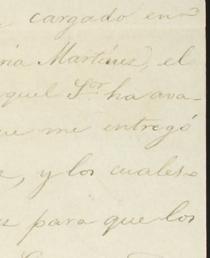 cargado en
ria Martínez, el
quel Sor ha ava-
ue me entregó
, y los cuales
para que los